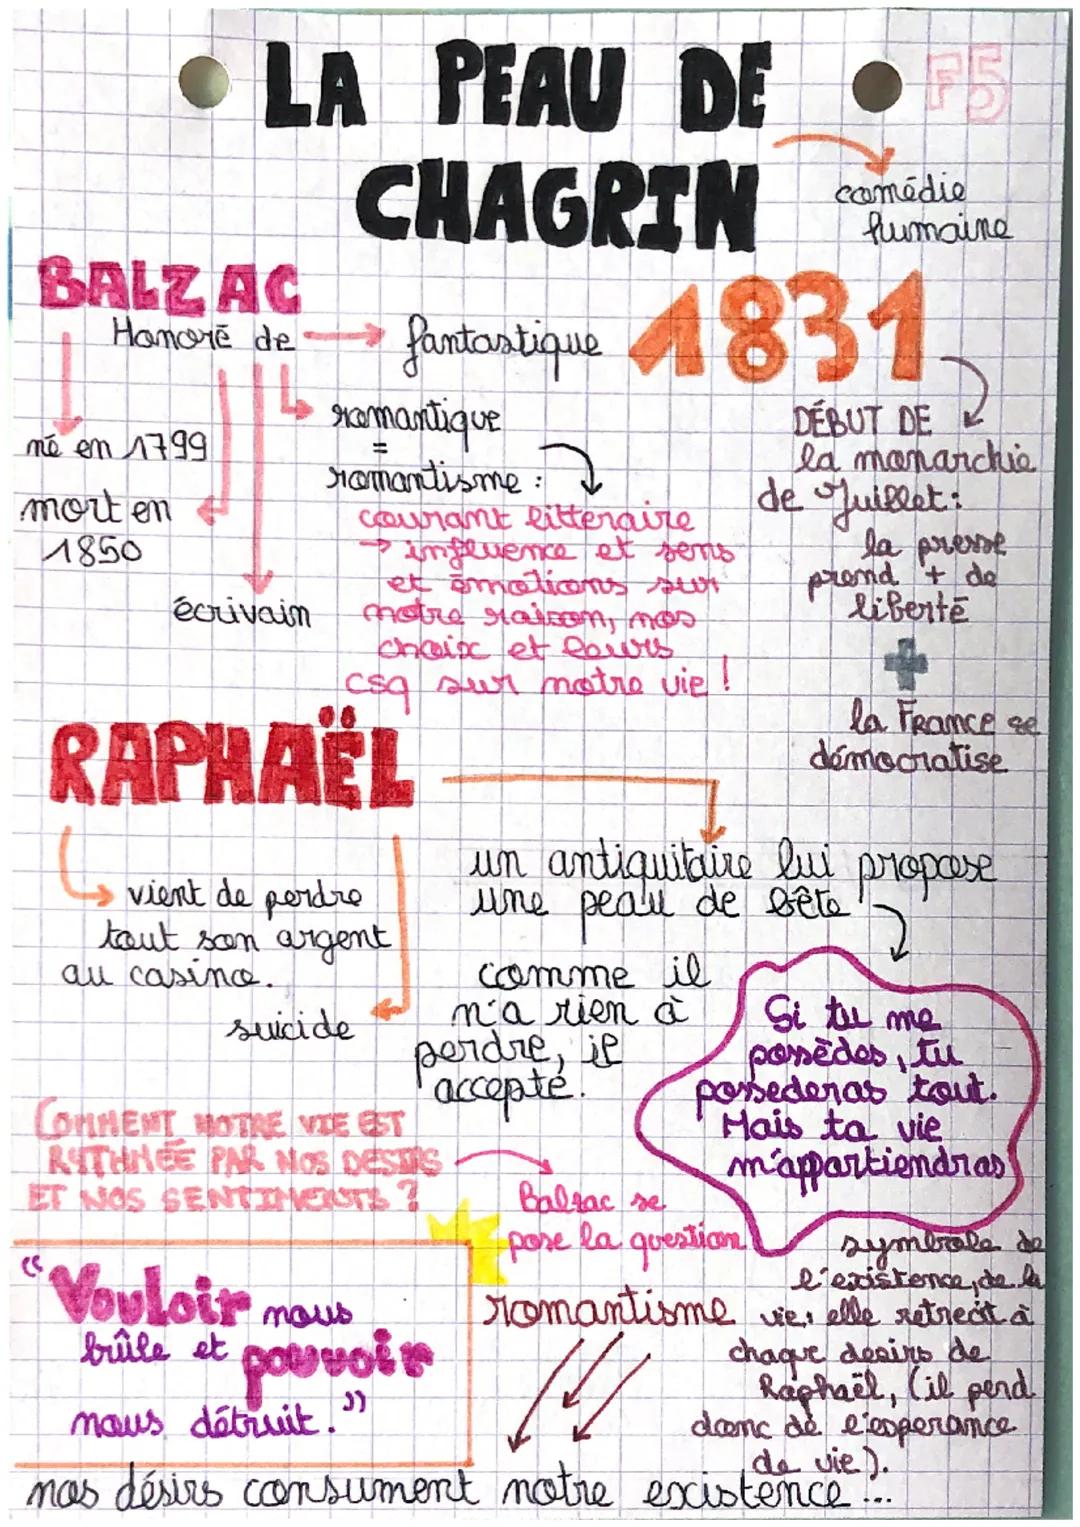 LA PEAU DE
CHAGRIN
F5
comédie
humaine
BALZAC
Honoré de
fantastique
1831
né en 1799
mort en
1850
écrivain
romantique
=
romantisme :
courant litteraire
→ influence et sens
et émotions sur
notre raison, nos
choix et leurs
csq sur notre vie !
DÉBUT DE
la monarchie
de Juillet :
la presse
prend + de
liberté
+
la France se
démocratise
RAPHAËL
vient de perdre
tout son argent
au casino.
suicide
un antiquitaire lui propose
une peau de bête
comme il
n'a rien à
perdre, il
accepte.
Si tu me
possèdes, tu
possederas tout.
Mais ta vie
m'appartiendras
COMMENT NOTRE VIE EST
RYTHMÉE PAR NOS DESIRS
ET NOS SENTIMENTS ?
Balzac se
pose la question
symbole de
l'existence, de la
vie : elle retrecit à
chaque desirs de
Raphaël, (il perd
donc de l'esperance
de vie).
"Vouloir nous
brûle et pouvoir
nous détruit."
romantisme
nos désirs consument notre existence...